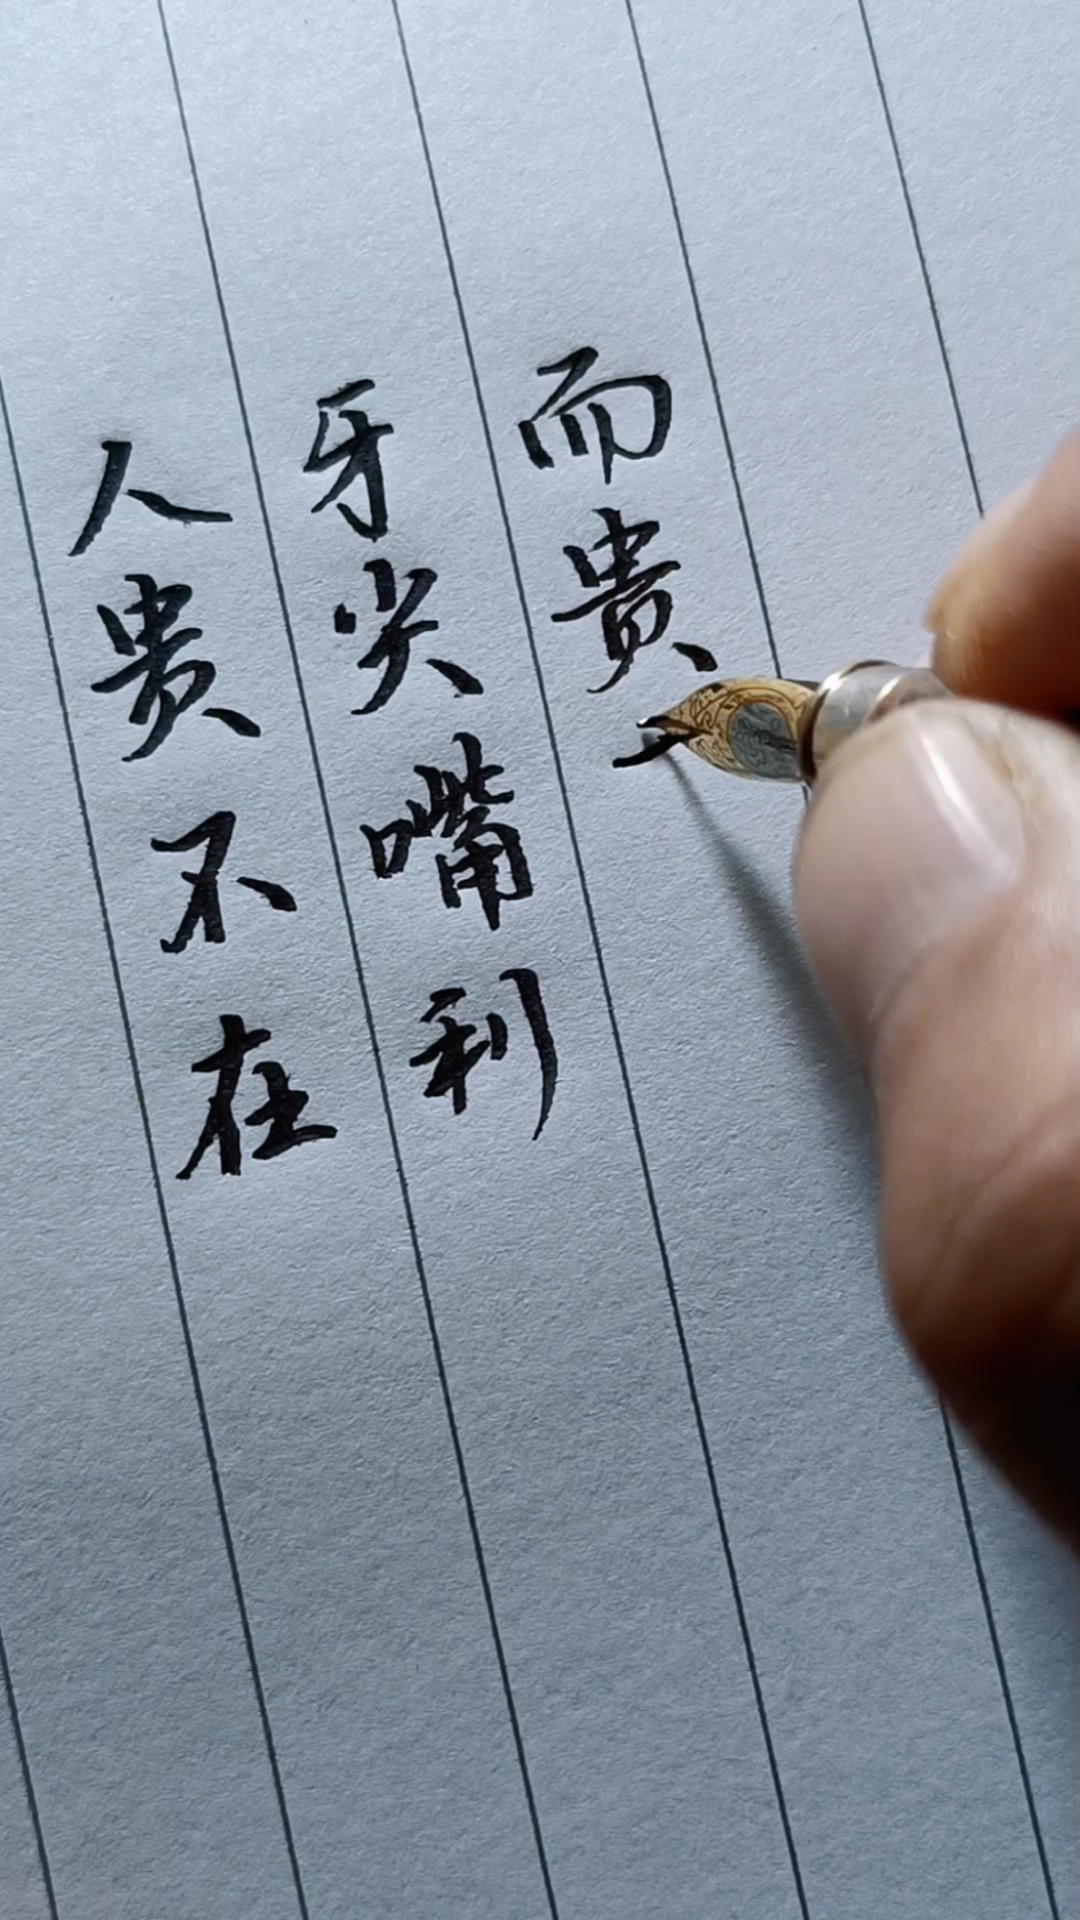 人贵不在
牙尖嘴利
而贵